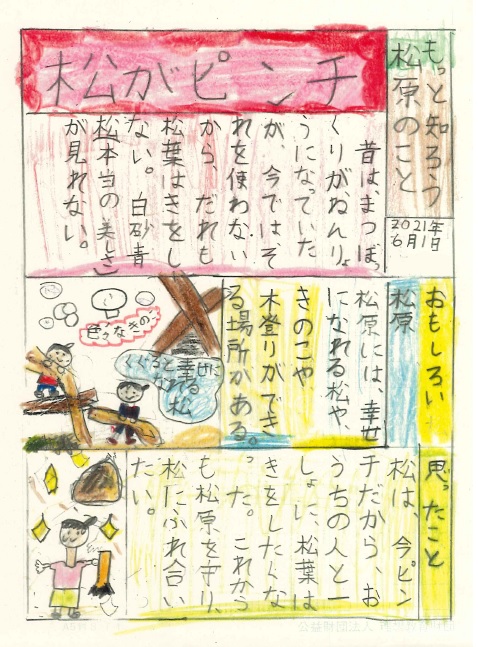 もっと知ろう
松原のこと
2021年
6月1日
松がピンチ
昔は、まつぼっ
くりがねんりょ
うになっていた
が、今ではそ
れを使わない
から、だれも
松葉はきをし
ない。白砂青
松本当の美しさ
が見れない。
おもしろい
松原
松原には、幸せ
になれる松や、
きのこや
木登りができ
る場所がある。
色々なきのこ
くぐると幸せに
なれる
松
思ったこと
松は、今ピン
チだから、お
うちの人と一
しょに、松葉は
きをしたくな
った。これから
も松原を守り、
松にふれ合い
たい。